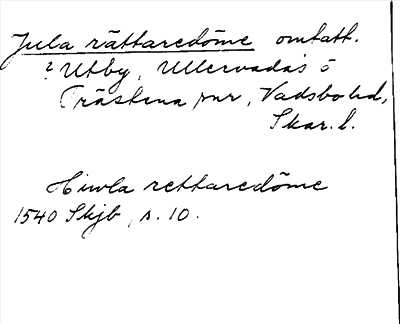 Jula rättaredöme omfatt.
? Utby, Ullervadas ö
Trästena snr, Vadsbo hd,
Skar. l.
Hiwla rettaredöme
1540 Skjb, s. 10.